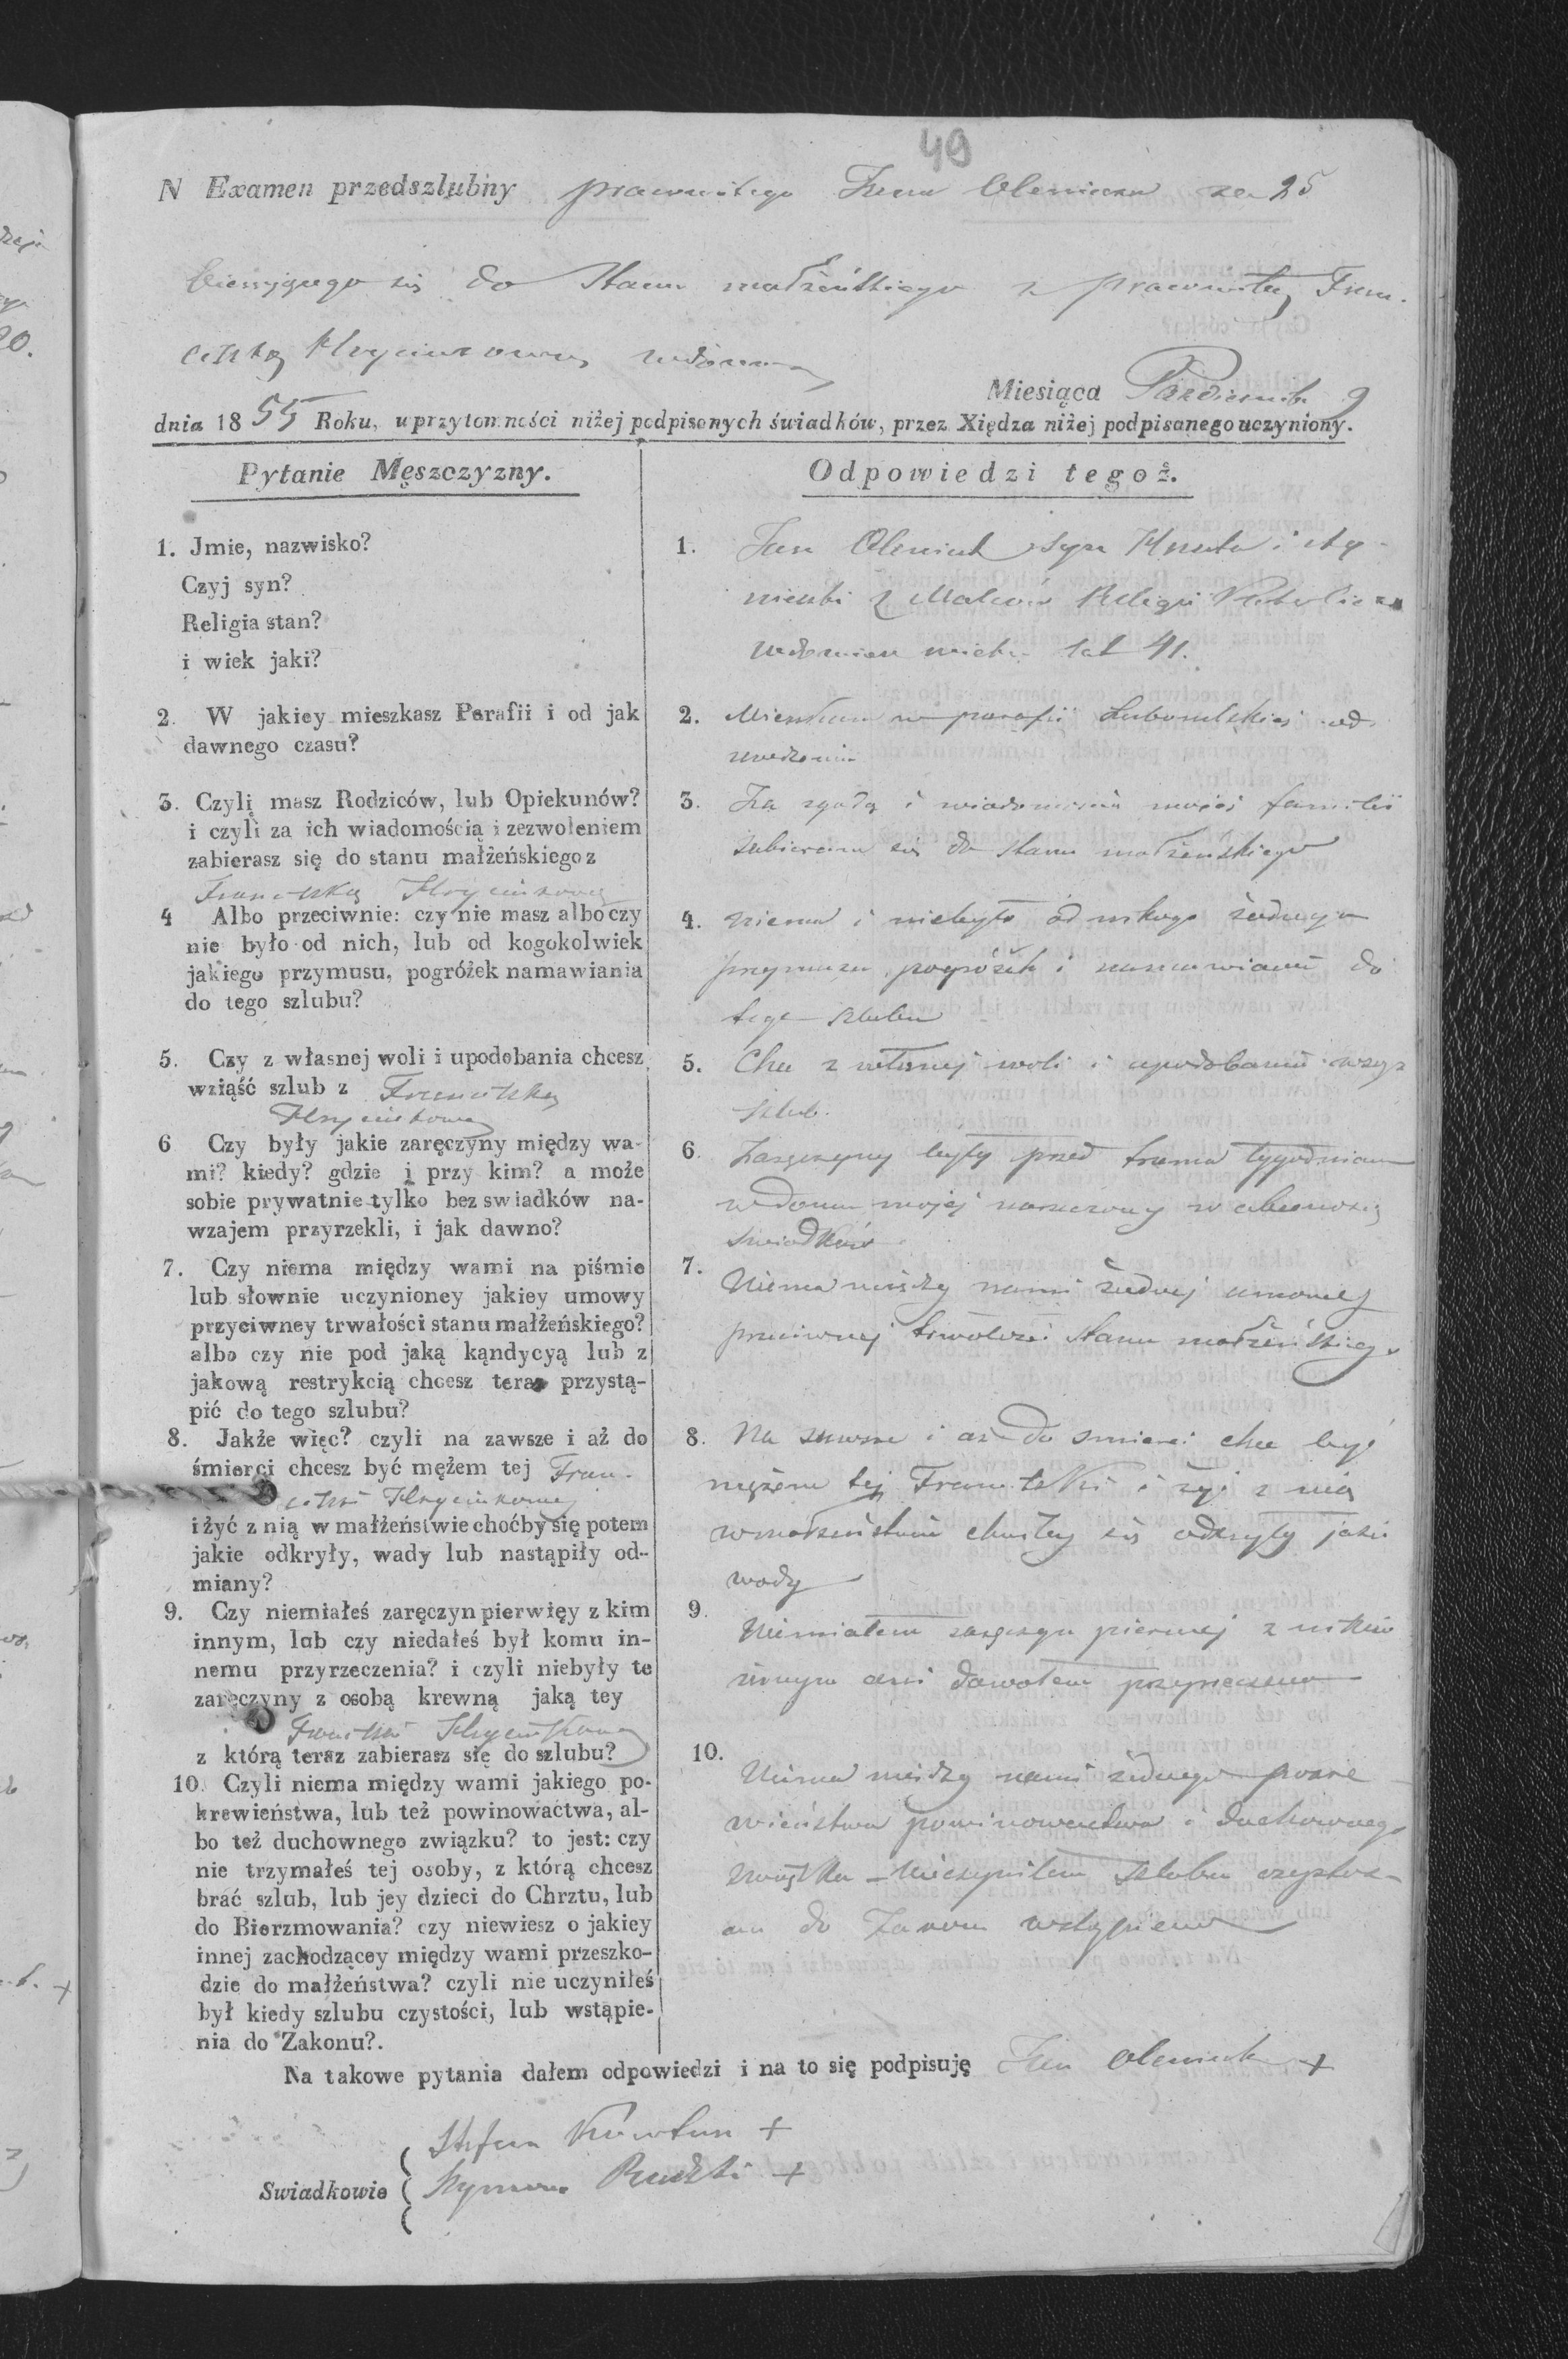 49
N Examen przedszlubny pracowitego Jana Oleniuka za 25
bierającego się do stanu małżeńskiego z pracowitą Fran-
ciszką Hryciukową wdową
Miesiąca Pazdziernika 9
dnia 1855 Roku, uprzytomności niżej podpisanych świadków, przez Xiędza niżej podpisanego uczyniony.
Pytanie Męszczyzny.
1. Jmie, nazwisko?
Czyj syn?
Religia stan?
i wiek jaki?
2. W jakiey mieszkasz Parafii i od jak
dawnego czasu?
3. Czyli masz Rodziców, lub Opiekunów?
i czyli za ich wiadomością i zezwoleniem
zabierasz się do stanu małżeńskiego z
Franciszką Hryciukową
4 Albo przeciwnie: czy nie masz albo czy
nie było od nich, lub od kogokolwiek
jakiego przymusu, pogróżek namawiania
do tego szlubu?
5. Czy z własnej woli i upodobania chcesz
wziąść szlub z Franciszką
Hryciukową
6 Czy były jakie zaręczyny między wa-
mi? kiedy? gdzie i przy kim? a może
sobie prywatnie tylko bez swiadków na-
wzajem przyrzekli, i jak dawno?
7. Czy niema między wami na piśmie
lub słownie uczynioney jakiey umowy
przyciwney trwałości stanu małżeńskiego?
albo czy nie pod jaką kąndycyą lub z
jakową restrykcią chcesz teraz przystą-
pić do tego szlubu?
8. Jakże więc? czyli na zawsze i aż do
śmierci chcesz być mężem tej Fran-
ciszki Hryciukowej
i żyć z nią w małżeństwie choćby się potem
jakie odkryły, wady lub nastąpiły od-
miany?
9. Czy niemiałeś zaręczyn pierwięy z kim
innym, lub czy niedałeś był komu in-
nemu przyrzeczenia? i czyli niebyły te
zaręczyny z osobą krewną jaką tey
z którą teraz zabierasz się do szlubu?
10. Czyli niema między wami jakiego po-
krewieństwa, lub też powinowactwa, al-
bo też duchownego związku? to jest: czy
nie trzymałeś tej osoby, z którą chcesz
brać szlub, lub jey dzieci do Chrztu, lub
do Bierzmowania? czy niewiesz o jakiey
innej zachodzącey między wami przeszko-
dzie do małżeństwa? czyli nie uczyniłeś
był kiedy szlubu czystości, lub wstąpie-
nia do Zakonu?.
Odpowiedzi tegoż.
1. Jan Oleniuk syn Hnata i
z Malców Religii Katolicka
wdowiec wieku lat 41.
2. Mieszkam w parafii od
urodzenia
3. Za zgodą i wiadomością mojej familii
zabieram się do stanu małżeńskiego
4. niema i niebyło od nikogo żadnego
przymusu, pogróżek i namawiania do
tego szlubu
5. Chce z własnej woli i upodobania wziąść
szlub.
6. Zaręczyny były przed trema tygodniami
w domu mojej narzeczonej w obecności
swiadków
7. Niema między nami żadnej umowy
przeciwnej trwałości stanu małżeńskiego
8. Na zawsze i aż do smierci chce być
mężem tej Franciszki i żyć z nią
w małżeństwie chociaż by się odkryły jakie
wady
9. Niemiałem zaręczyn pierwej z nikim
innym ani dawałem przyrzeczenia
10. Niema między nami żadnego pokre
wieństwa powinowactwa i duchownego
związku - Nieczyniłem szlubu czystos-
ani do Zakonu wstąpienia
Na takowe pytania dałem odpowiedzi i na to się podpisuję Jan Oleniuk +
Swiadkowie
Stefan Kowtun +
Szymon Rudzki +